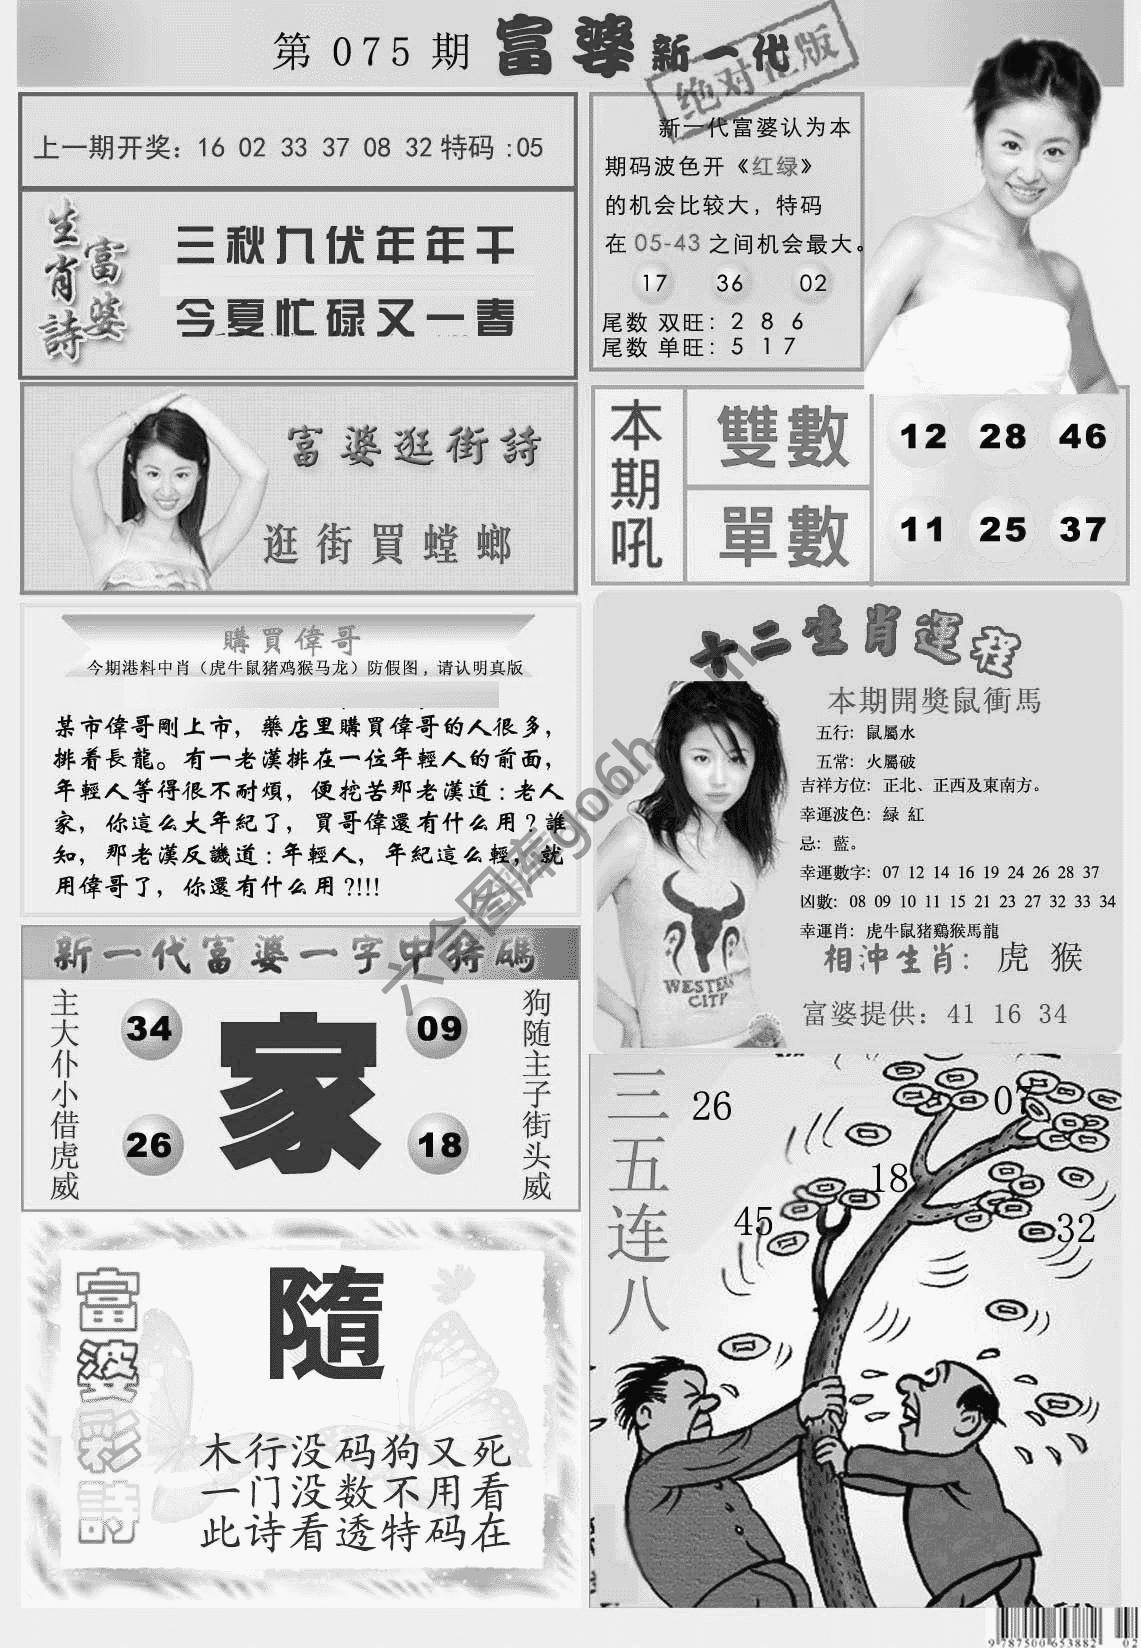 第 075 期 富婆 新一代
绝对正版
上一期开奖：16 02 33 37 08 32 特码 :05
生肖詩
富婆
三秋九伏年年干
今夏忙碌又一春
新一代富婆认为本
期码波色开《红绿》
的机会比较大，特码
在 05-43 之间机会最大。
17 36 02
尾数 双旺：2 8 6
尾数 单旺：5 1 7
富婆逛街詩
逛街買螳螂
本期吼
雙數 12 28 46
單數 11 25 37
購買偉哥
今期港料中肖（虎牛鼠猪鸡猴马龙）防假图，请认明真版
某市偉哥剛上市，藥店里購買偉哥的人很多，
排着長龍。有一老漢排在一位年輕人的前面，
年輕人等得很不耐煩，便挖苦那老漢道：老人
家，你這么大年紀了，買哥偉還有什么用？誰
知，那老漢反譏道：年輕人，年紀這么輕，就
用偉哥了，你還有什么用?!!!
十二生肖運程
本期開獎鼠衝馬
五行：鼠屬水
五常：火屬破
吉祥方位：正北、正西及東南方。
幸運波色：绿 紅
忌：藍。
幸運數字：07 12 14 16 19 24 26 28 37
凶數：08 09 10 11 15 21 23 27 32 33 34
幸運肖：虎牛鼠猪鷄猴馬龍
相沖生肖：虎 猴
富婆提供：41 16 34
WESTERN
CITY
新一代富婆一字中特碼
主大仆小借虎威
34 09
家
26 18
狗随主子街头威
富婆彩詩
隨
木行没码狗又死
一门没数不用看
此诗看透特码在
三五连八
26
07
18
45
32
六合图库go6h.com
9 787500 653882
02